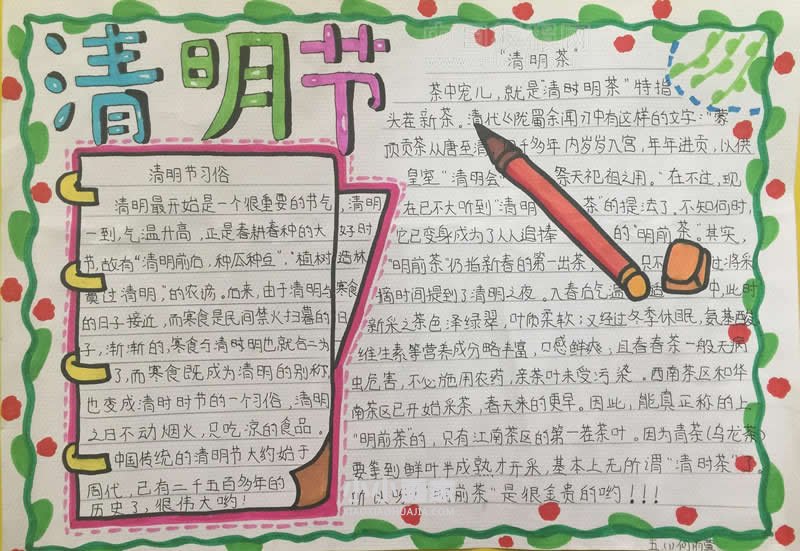 清明节
清明节习俗
清明最开始是一个很重要的节气,清明
一到,气温升高,正是春耕春种的大好时
节,故有"清明前后,种瓜种豆","植树造林
莫过清明,"的农谚。后来,由于清明与寒食
的日子接近,而寒食是民间禁火扫墓的日
子,渐渐的,寒食与清时明也就合二为
了,而寒食既成为清明的别称
也变成清时时节的一个习俗,清明
之日不动烟火,只吃凉的食品。
中国传统的清明节大约始于
周代,已有二千五百多年的
历史了,很伟大哟!
"清明茶"
茶中宠儿,就是"清时明茶"特指
头茬新茶。清代《陇蜀余闻》中有这样的文字:"蒙
顶贡茶从唐至清 千多年内岁岁入宫,年年进贡,以供
皇室"清明会" 祭天祀祖之用。"在不过,现
在已不大听到"清明 茶"的提法了。不知何时,
它已变身成为了人人追捧 的"明前茶"。其实,
"明前茶"仍指新春的第一出茶, 只不 过将采
摘时间提到了清明之夜。入春后气温 中,此时
新采之茶色泽绿翠,叶质柔软;又经过冬季休眠,氨基酸
维生素等营养成分略丰富,口感鲜爽;且春春茶一般无病
虫危害,不必施用农药,亲茶叶未受污染。西南茶区和华
南茶区已开始采茶,春天来的更早。因此,能真正称的上
"明前茶"的,只有江南茶区的第一茬茶叶。因为青茶(乌龙茶)
要等到鲜叶半成熟才开采,基本上无所谓"清时茶"了。
所以 明前茶"是很金贵的哟!!!
小小画家
XIAOXIAOHUAJIA.COM
五(1)何